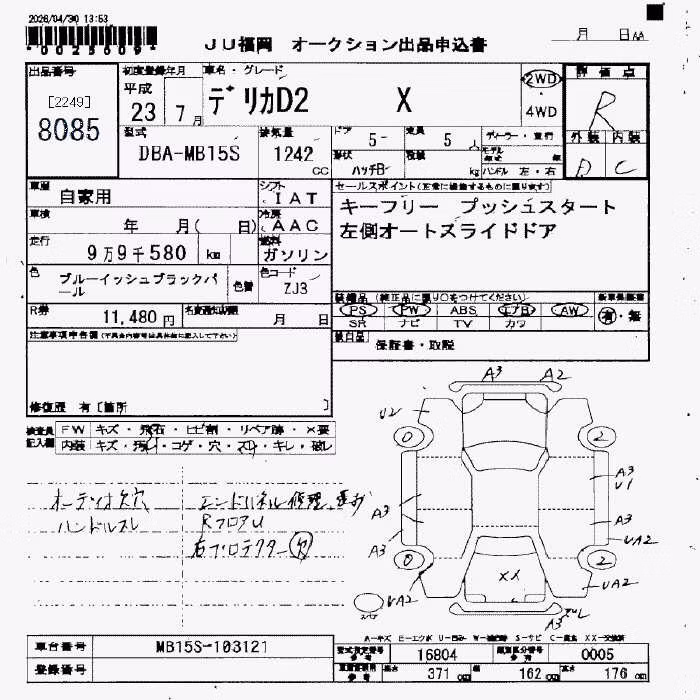 2026/04/30 13:53
*0023609*
JU福岡 オークション出品申込書
月 日 AA
出品番号
[2249]
8085
初度登録年月
平成
23 7月
車名・グレード
デリカD2 X
2WD
4WD
評価点
R
外装 内装
D C
型式
DBA-MB15S
排気量
1242
CC
ドア
5-
定員
5 人
形状
ハッチB-
積載
kg
ディーラー・並行
モデル
年式 年
ハンドル 左・右
車歴
自家用
シフト
IAT
車検
年 月( 日)
冷房
AAC
走行
9万9千580 km
燃料
ガソリン
色
ブルーイッシュブラックパ
ール
色替
色コード
ZJ3
R券
11,480 円
名変通知期限
月 日
セールスポイント(正常に機能するものに限ります)
キーフリー プッシュスタート
左側オートスライドドア
装備品 (純正品に限り○をつけてください)
新車保証書
PS PW ABS エアB AW
有・無
SR ナビ TV カワ
保証書・取説
注意事項申告欄
修復歴 有〔箇所 〕
検査員
記入欄
FW キズ・飛石・ヒビ割・リペア跡・X要
内装 キズ・汚れ・コゲ・穴・スレ・キレ・破レ
オーディオ欠穴
ハンドルスレ
エンドパネル修理
RフロアU
右プロテクター欠
A3 A2
U2
0 2
A3
U1
A3
A3
A3
UA2
0 2
XX
UA2
UA2
スペア
A3
A-キズ E-エクボ U-凹み W-補修跡 S-サビ C-腐食 XX-交換済
車台番号
MB15S-103121
登録番号
型式指定番号
参考
16804
類別区分番号
参考
0005
長さ
371 cm
幅
162 cm
高さ
176 cm